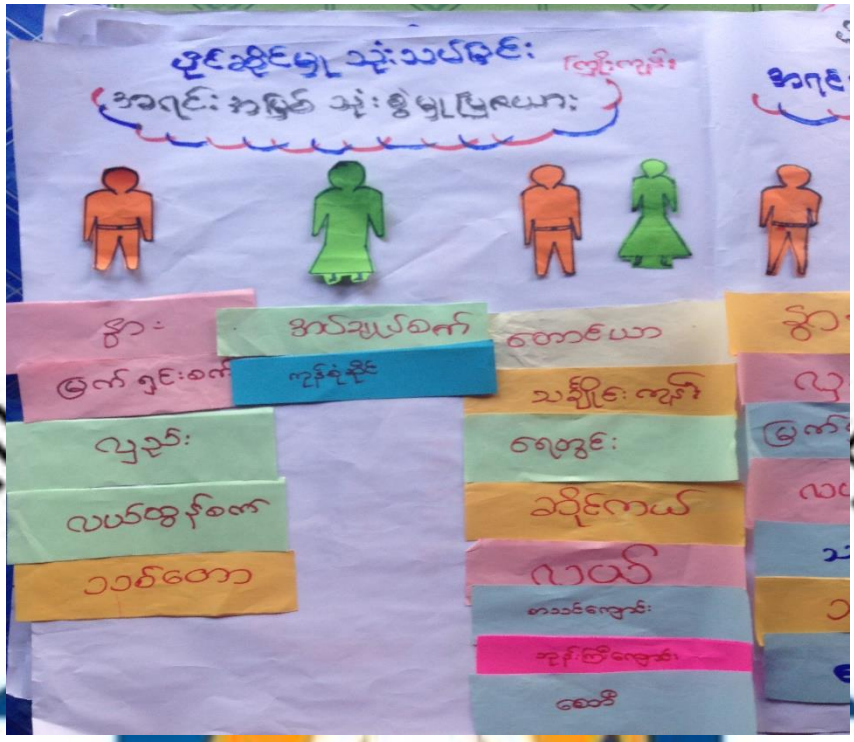 ပိုင်ဆိုင်မှု သုံးသပ်ခြင်း
အရင်းအမြစ် သုံးစွဲမှုပြဇယား
နွား
မြက်ရှင်းစက်
လှည်း
လယ်ထွန်စက်
သစ်တော
အပ်ချုပ်စက်
ကုန်စုံဆိုင်
တောင်ယာ
သင်္ချိုင်းကုန်း
ရေတွင်း
ဆိုင်ကယ်
လယ်
စာသင်ကျောင်း
ဘုန်းကြီးကျောင်း
စေတီ
အရင်
နွား
လှ
မြက်
လယ